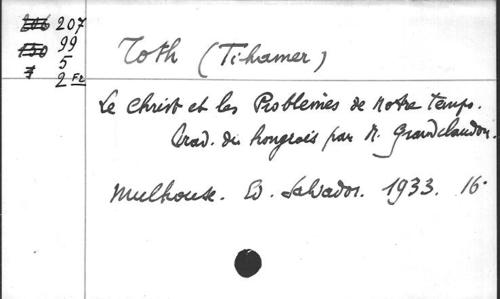 207
99
5
2 Fr
Toth (Tihamer)
Le Christ et les Problèmes de notre temps.
Trad. du hongrois par M. Grandclaudon.
Mulhouse. Ed. Salvator. 1933. 16°